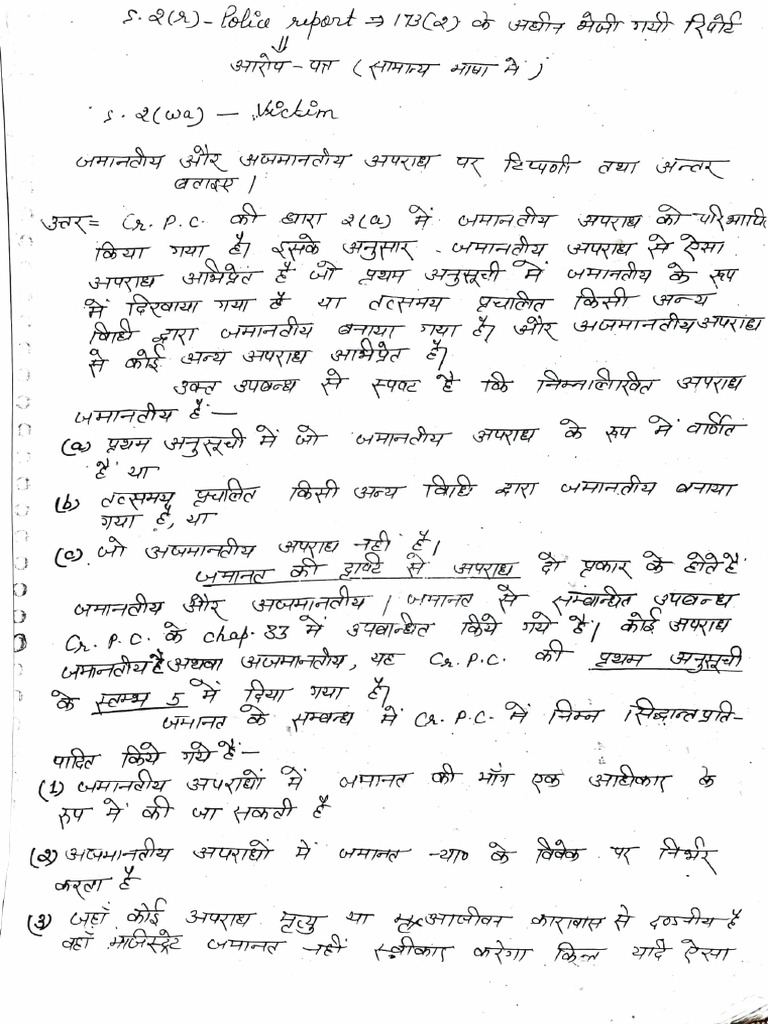 S. 2(r) - Police report ⇒ 173(2) के अधीन भेजी गयी रिपोर्ट
⇓
आरोप - पत्र ( सामान्य भाषा में )
S. 2(wa) — Victim
जमानतीय और अजमानतीय अपराध पर टिप्पणी तथा अन्तर
बताइए |
उत्तर = Cr. P. C. की धारा 2(a) में जमानतीय अपराध को परिभाषि
किया गया है। इसके अनुसार - जमानतीय अपराध से ऐसा
अपराध अभिप्रेत है जो प्रथम अनुसूची में जमानतीय के रूप
में दिखाया गया है या तत्समय प्रचलित किसी अन्य
विधि द्वारा जमानतीय बनाया गया है। और अजमानतीय अपराध
से कोई अन्य अपराध अभिप्रेत है।
उक्त उपबन्ध से स्पष्ट है कि निम्नलिखित अपराध
जमानतीय हैं :—
(a) प्रथम अनुसूची में जो जमानतीय अपराध के रूप में वर्णित
हैं या
(b) तत्समय प्रचलित किसी अन्य विधि द्वारा जमानतीय बनाया
गया है, या
(c) जो अजमानतीय अपराध नहीं है।
जमानत की दृष्टि से अपराध दो प्रकार के होते हैं
जमानतीय और अजमानतीय | जमानत से सम्बन्धित उपबन्ध
Cr. P. C. के chap. 33 में उपबन्धित किये गये हैं। कोई अपराध
जमानतीय है अथवा अजमानतीय, यह Cr. P.C. की प्रथम अनुसूची
के स्तम्भ 5 में दिया गया है।
जमानत के सम्बन्ध में Cr. P.C. में निम्न सिद्धान्त प्रति-
पादित किये गये हैं —
(1) जमानतीय अपराधों में जमानत की माँग एक अधिकार के
रूप में की जा सकती है
(2) अजमानतीय अपराधों में जमानत न्या० के विवेक पर निर्भर
करता है
(3) जहाँ कोई अपराध मृत्यु या आजीवन कारावास से दण्डनीय है
वहाँ मजिस्ट्रेट जमानत नहीं स्वीकार करेगा किन्तु यदि ऐसा